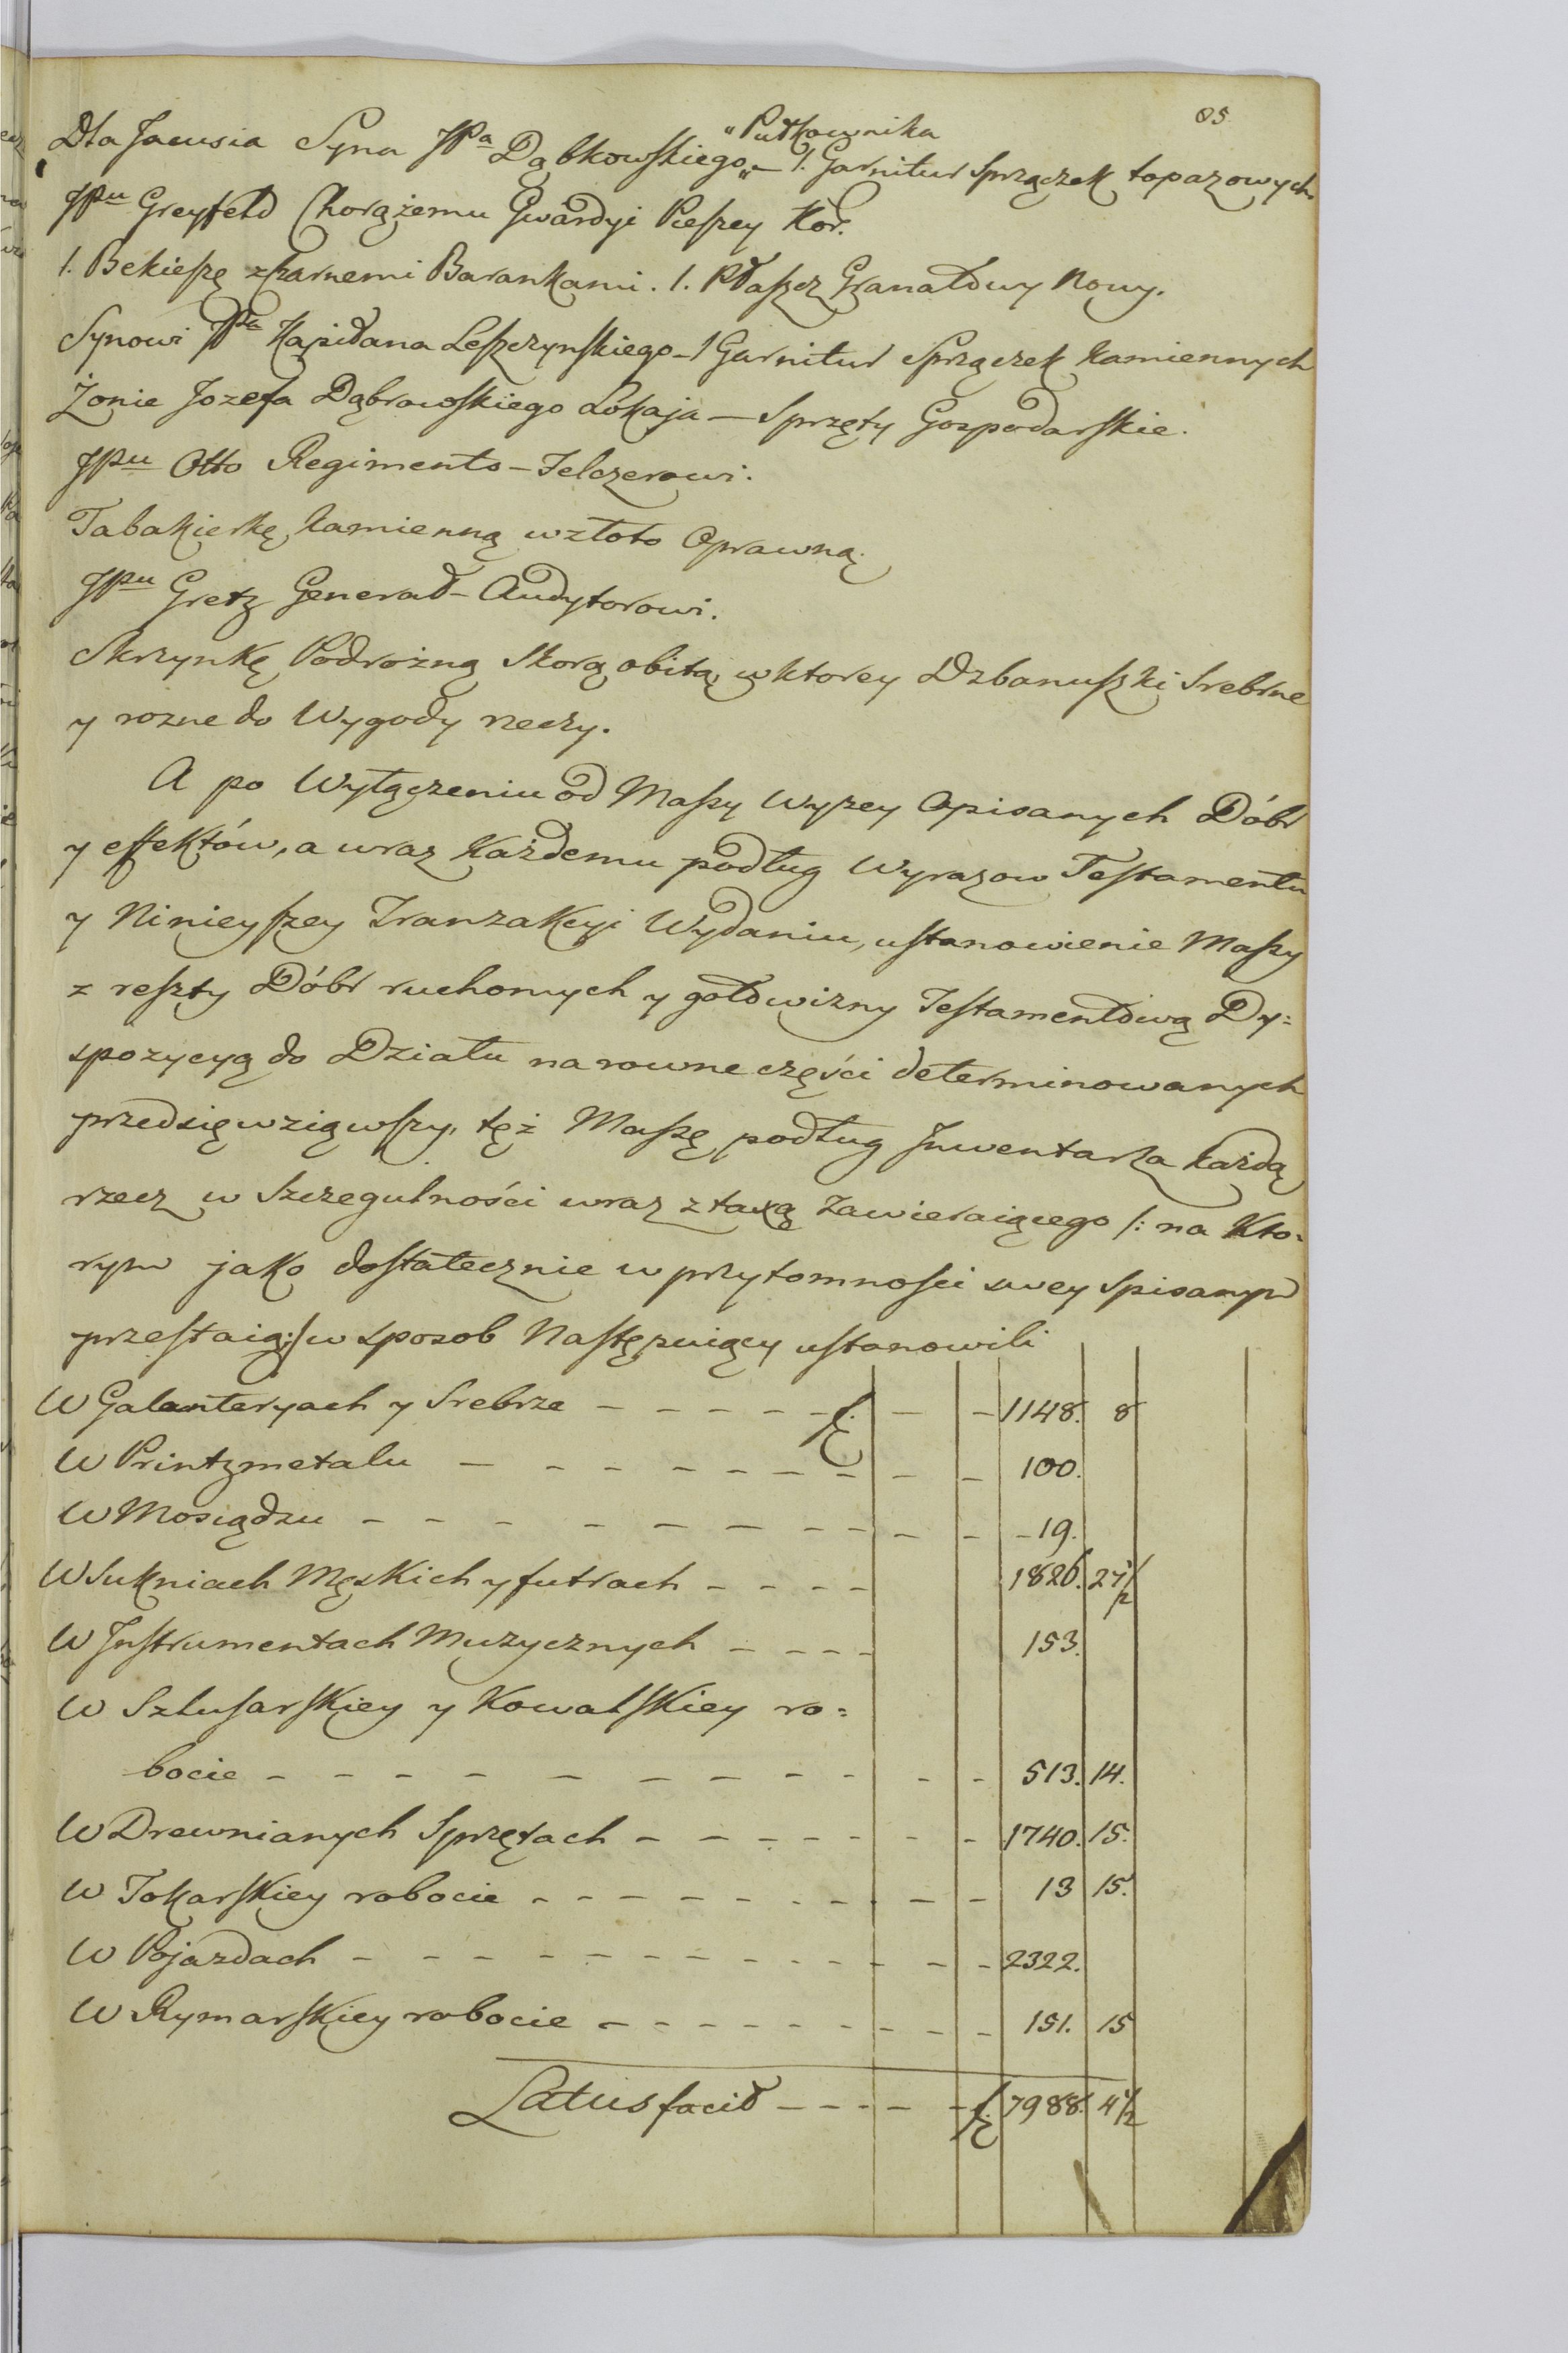 85
"Pułkownika
Dla Jacusia Syna JPa Dąbkowskiego„ — 1. Garnitur Sprzączek topazowych
JPu Greyfeld Chorążemu Gwardyi Pieszey Kor.
1. Bekieszę z Czarnemi Barankami. 1. Płaszcz Granatowy Nowy.
Synowi JPa Kapitana Leszczynskiego – 1 Garnitur Sprzączek kamiennych
Żonie Jozefa Dąbrowskiego Lokaja — Sprzęty Gospodarskie.
JPu Otto Regiments – Felczerowi.
Tabakierkę kamienną w złoto Oprawną.
JPu Gretz Generał – Audytorowi.
Skrzynkę Podrożną Skorą obitą, w ktorey Dzbanuszki Srebrne
y rozne do Wygody rzeczy.
A po Wyłączeniu od Massy Wyzey Opisanych Dóbr
y effektów, a wraz Każdemu podług Wyrazow Testamentu
y Ninieyszey Tranzakcyi Wydaniu, ustanowienie Massy
z reszty Dóbr ruchomych y gotowizny Testamentową Dy=
spozycyą do Działu na rowne części determinowanych
przedsięwziąwszy, tęż Massę podług Inwentarza każdą
rzecz w Szczegulności wraz z taxą Zawieraiącego /: na Kto=
rym jako dostatecznie w przytomności swey Spisanym
przestaią :/ w sposob Następuiący ustanowili
W Galanteryach y Srebrze – – – – – f. – – 1148. 8
W Printzmetalu – – – – – – – – – 100.
W Mosiądzu – – – – – – – – – – – 19.
W Sukniach Męskich y futrach – – – – 1826. 27 1/2
W Instrumentach Muzycznych – – – – 153.
W Szlusarskiey y Kowalskiey ro=
bocie – – – – – – – – – – – 513. 14.
W Drewnianych Sprzętach – – – – – – – 1740. 15.
W Tokarskiey robocie – – – – – – – – – – 13 15.
W Pojazdach – – – – – – – – – – – – 2322.
W Rymarskiey robocie – – – – – – – – – – 151. 15
Latus facit – – – – – f. 7988. 4 1/2